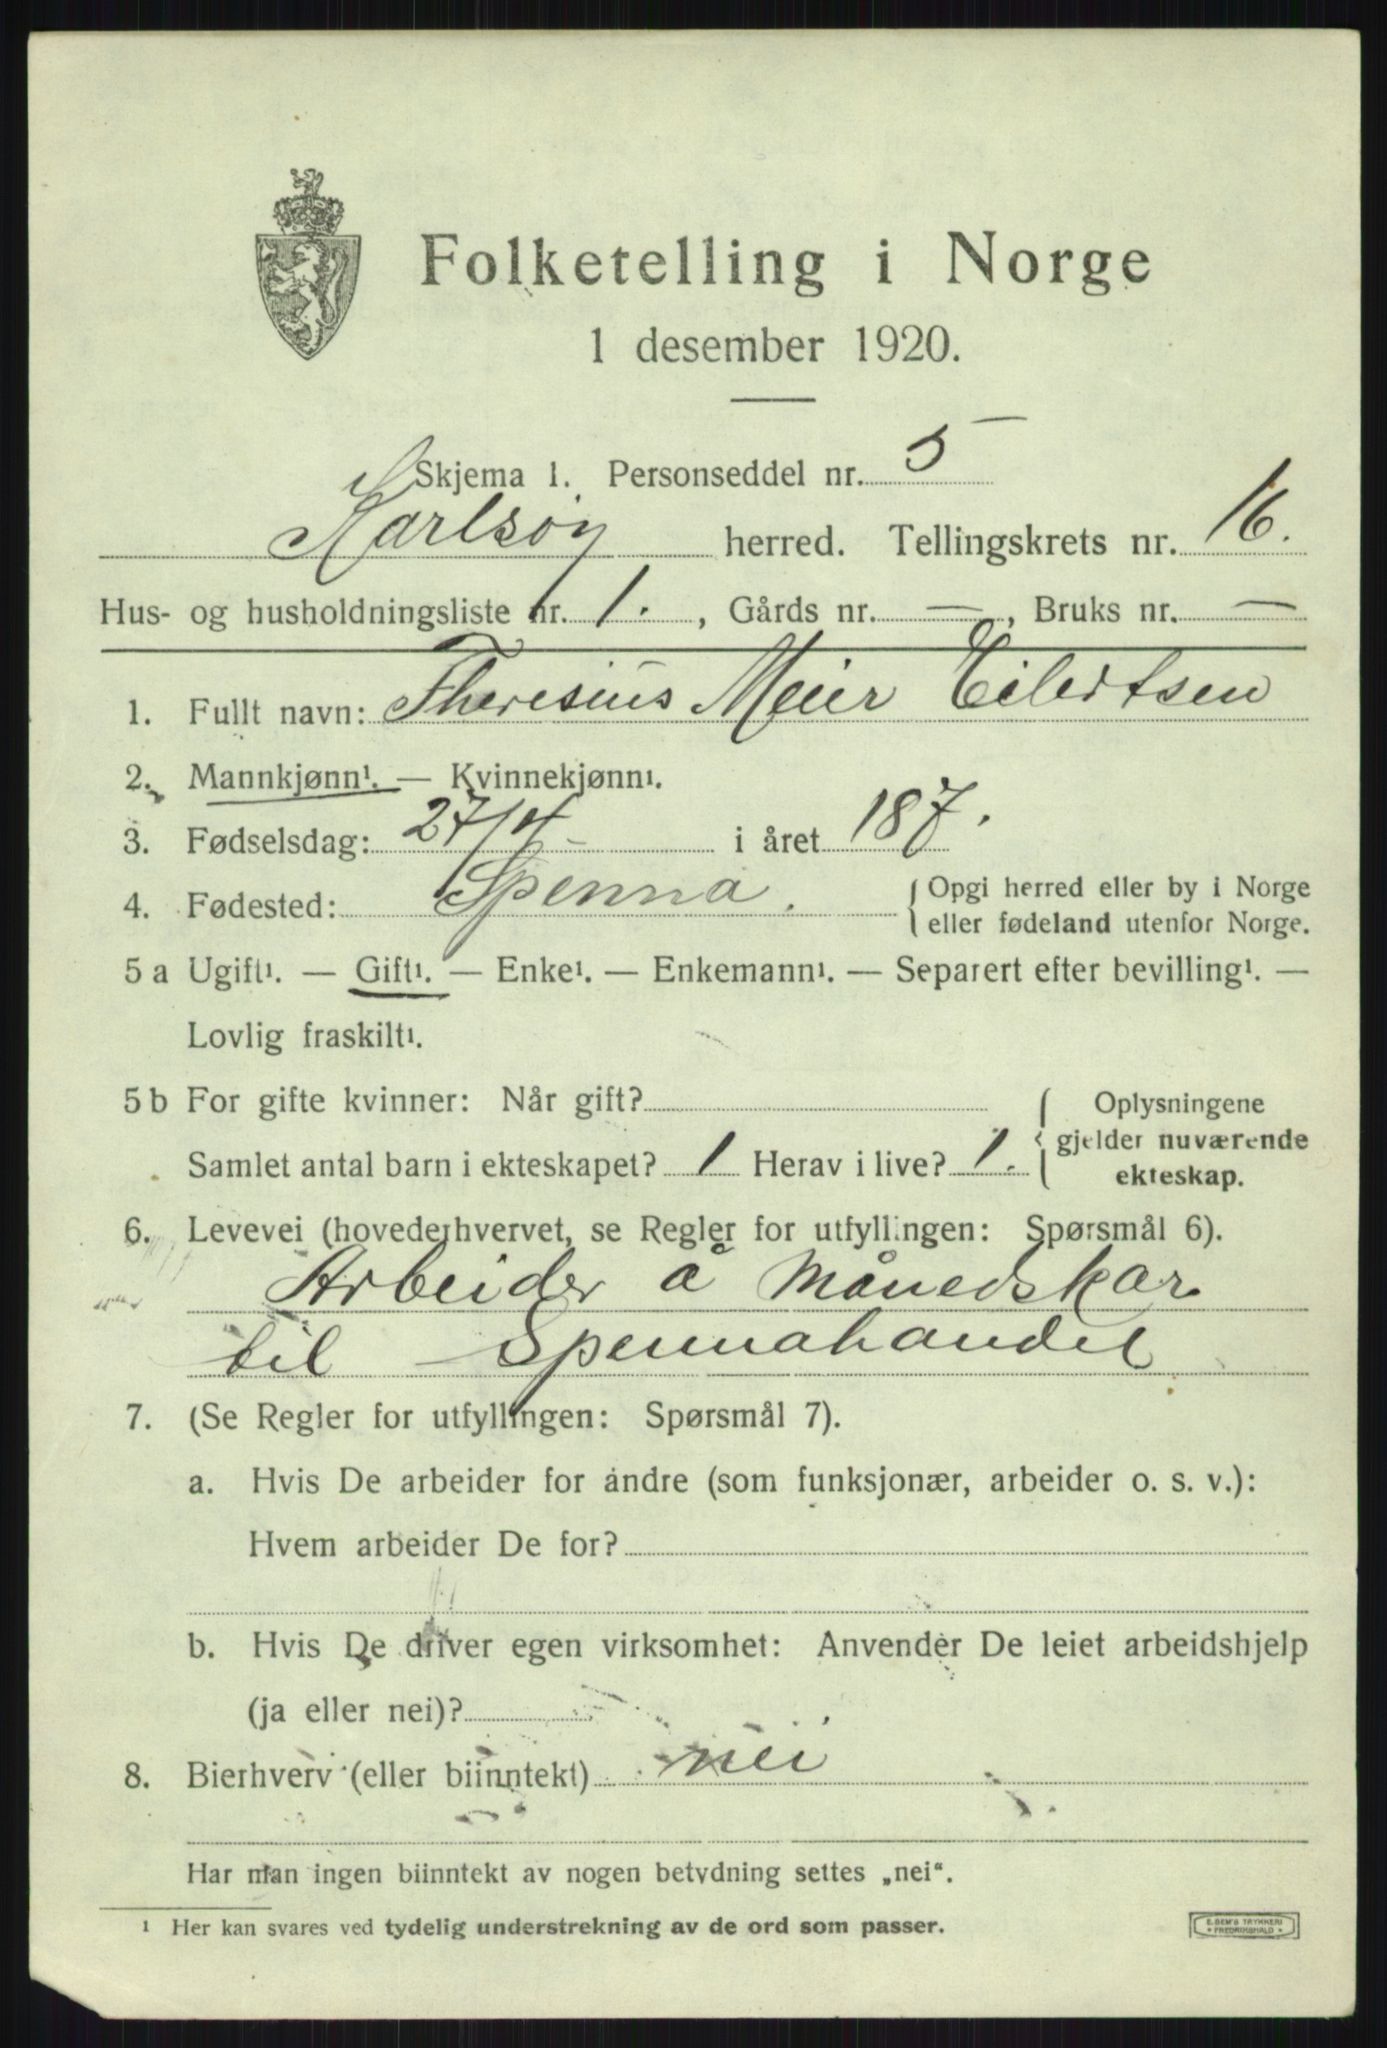 Folketelling i Norge
1 desember 1920.
Skjema 1. Personseddel nr. 5
Karlsøy herred. Tellingskrets nr. 16.
Hus- og husholdningsliste nr. 1. , Gårds nr. — , Bruks nr. —
1. Fullt navn: Theresius Meier Eilertsen
2. Mannkjønn¹. — Kvinnekjønn¹.
3. Fødselsdag: 27/4 i året 187.
4. Fødested: Spenna. { Opgi herred eller by i Norge
eller fødeland utenfor Norge.
5 a Ugift¹. — Gift¹. — Enke¹. — Enkemann¹. — Separert efter bevilling¹. —
Lovlig fraskilt¹.
5 b For gifte kvinner: Når gift?
Samlet antal barn i ekteskapet? 1 Herav i live? 1.
Oplysningene
gjelder nuværende
ekteskap.
6. Levevei (hovederhvervet, se Regler for utfyllingen: Spørsmål 6).
Arbeider å Månedskar
til Spennahandel
7. (Se Regler for utfyllingen: Spørsmål 7).
a. Hvis De arbeider for andre (som funksjonær, arbeider o. s. v.):
Hvem arbeider De for?
b. Hvis De driver egen virksomhet: Anvender De leiet arbeidshjelp
(ja eller nei)?
8. Bierhverv (eller biinntekt) nei
Har man ingen biinntekt av nogen betydning settes „nei“.
¹ Her kan svares ved tydelig understrekning av de ord som passer.
E. SEM'S TRYKKERI
FREDRIKSHALD